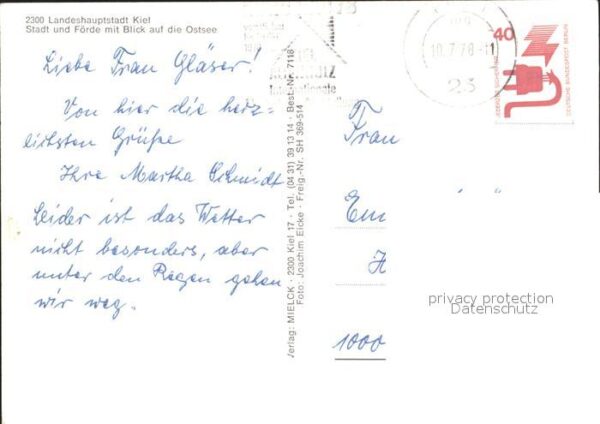 2300 Landeshauptstadt Kiel
Stadt und Förde mit Blick auf die Ostsee
Liebe Frau Gläser!
Von hier die herz-
lichsten Grüße
Ihre Martha Schmidt
Leider ist das Wetter
nicht besonders, aber
unter den Regen gehen
wir weg.
Verlag: MIELCK · 2300 Kiel 17 · Tel. (04 31) 39 13 14 · Best.-Nr. 7118
Foto: Joachim Eicke · Freig.-Nr. SH 369-514
10.7.78-11
23
40
JEDERZEIT SICHERHEIT
DEUTSCHE BUNDESPOST BERLIN
Frau
Em
H
1000
privacy protection
Datenschutz